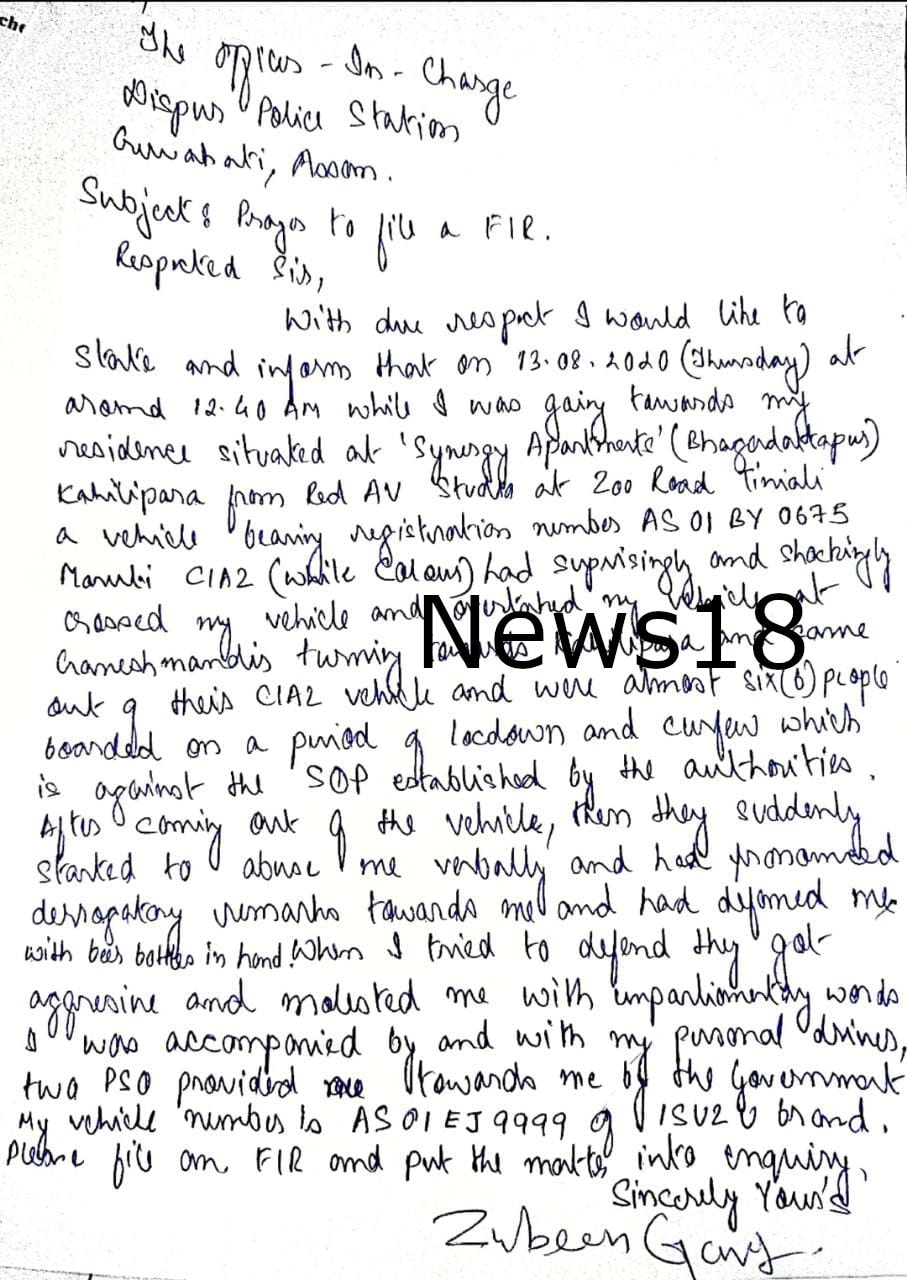 che
The Officer - In - Charge
Dispur Police Station
Guwahati, Assam.
Subject : Prayer to file a FIR.
Respected Sir,
With due respect I would like to
state and inform that on 13.08.2020 (Thursday) at
around 12.40 AM while I was going towards my
residence situated at 'Synergy Apartments' (Bhagadattapur)
Kahilipara from Red AV Studio at Zoo Road Tiniali
a vehicle bearing registration number AS 01 BY 0675
Maruti CIAZ (White Colour) had suprisingly and shockingly
crossed my vehicle and overtaked my vehicle at
Ganeshmandir turning towards Kahilipara and came
News18
out of their CIAZ vehicle and were almost six (6) people
boarded on a period of locdown and curfew which
is against the SOP established by the authorities.
After coming out of the vehicle, then they suddenly
started to abuse me verbally and had pronounced
derrogatory remarks towards me and had defomed me
with beer bottles in hand. When I tried to defend they got
aggresive and molested me with unparliamentary words
I was accompanied by and with my personal driver,
two PSO provided towards me by the Government
My vehicle number is AS 01 EJ 9999 of ISUZU brand.
Please file an FIR and put the matter into enquiry,
Sincerely Your's
Zubeen Garg.